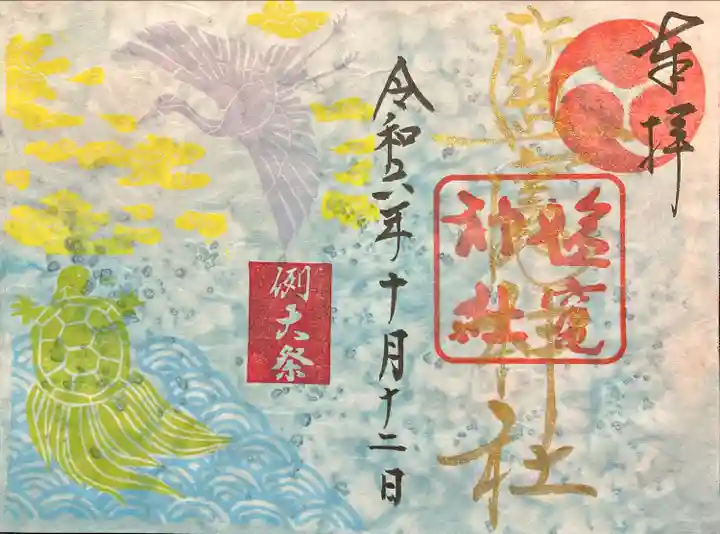 奉拝
鹽竈神社
塩竈
神社
令和六年十月十二日
例大祭